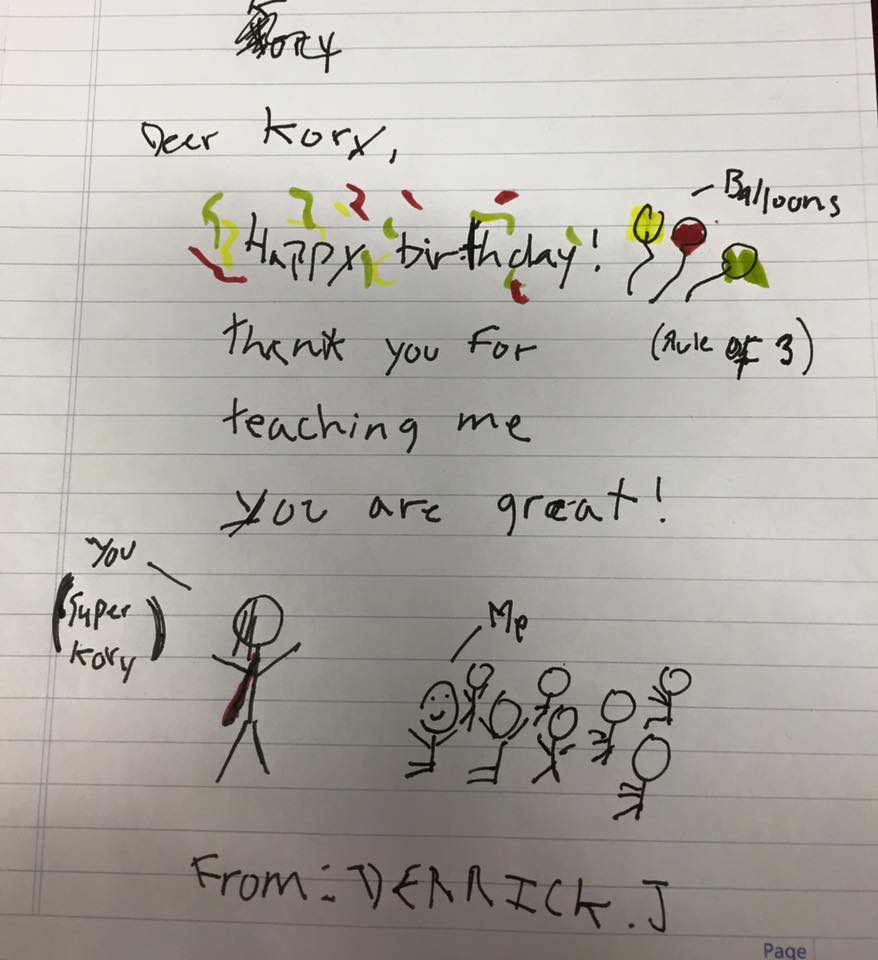 Kory
Dear Kory,
Happy birthday!
Balloons
thank you For
(Rule of 3)
teaching me
you are great!
You
(Super
Kory)
Me
From: DERRICK.J
Page